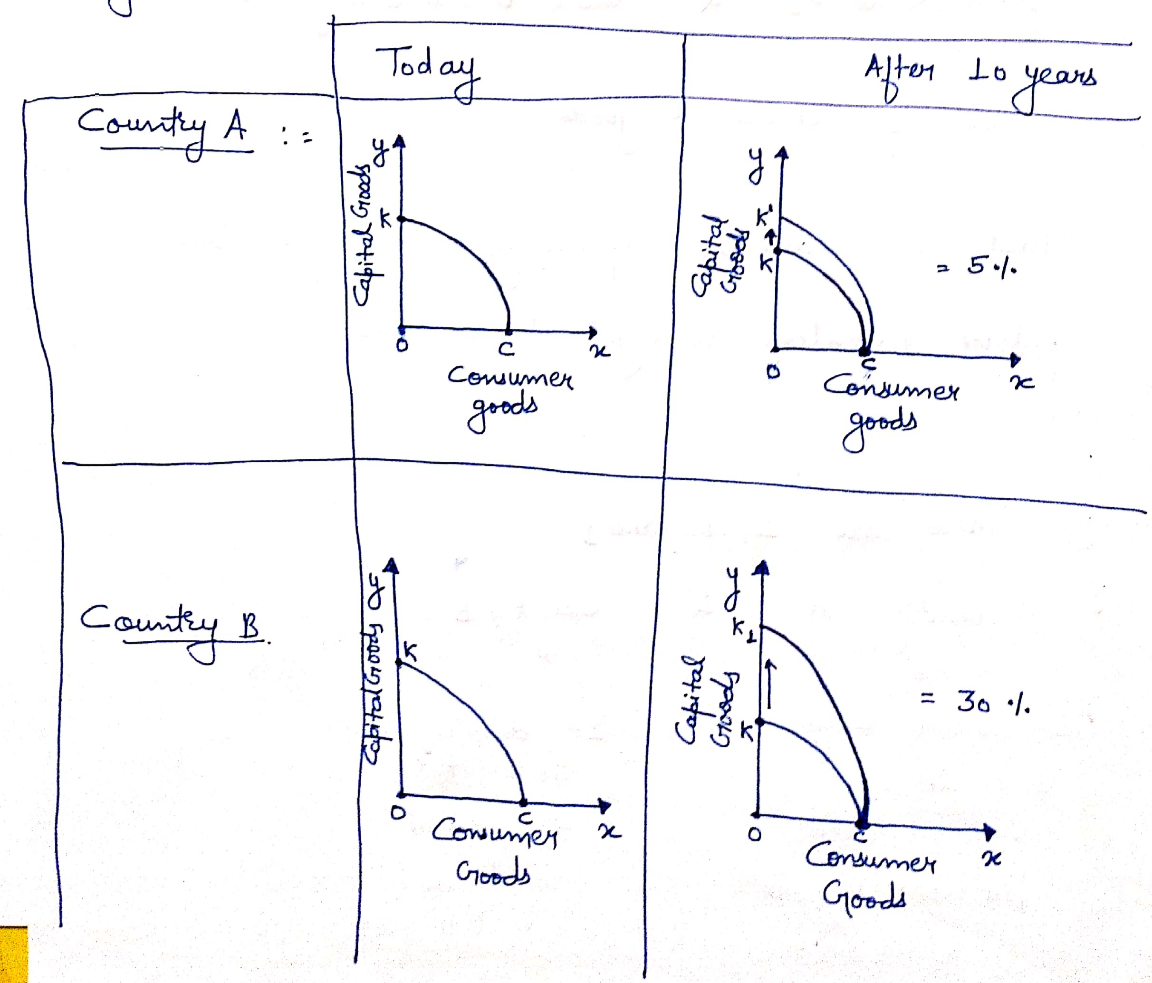 Today
After 10 years
Country A :=
y
Capital Goods
K
O
C
x
Consumer
goods
y
Capital
Goods
K'
K
= 5%
O
C
x
Consumer
goods
Country B.
y
Capital Goods
K
O
C
x
Consumer
Goods
y
K1
Capital
Goods
K
= 30%
O
C
x
Consumer
Goods